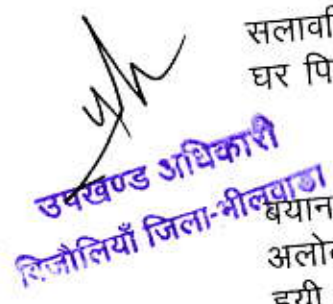 सलावटि
घर पि
उपखण्ड अधिकारी
बिजौलियाँ जिला-भीलवाडा
बयान
अलोव
हुयी